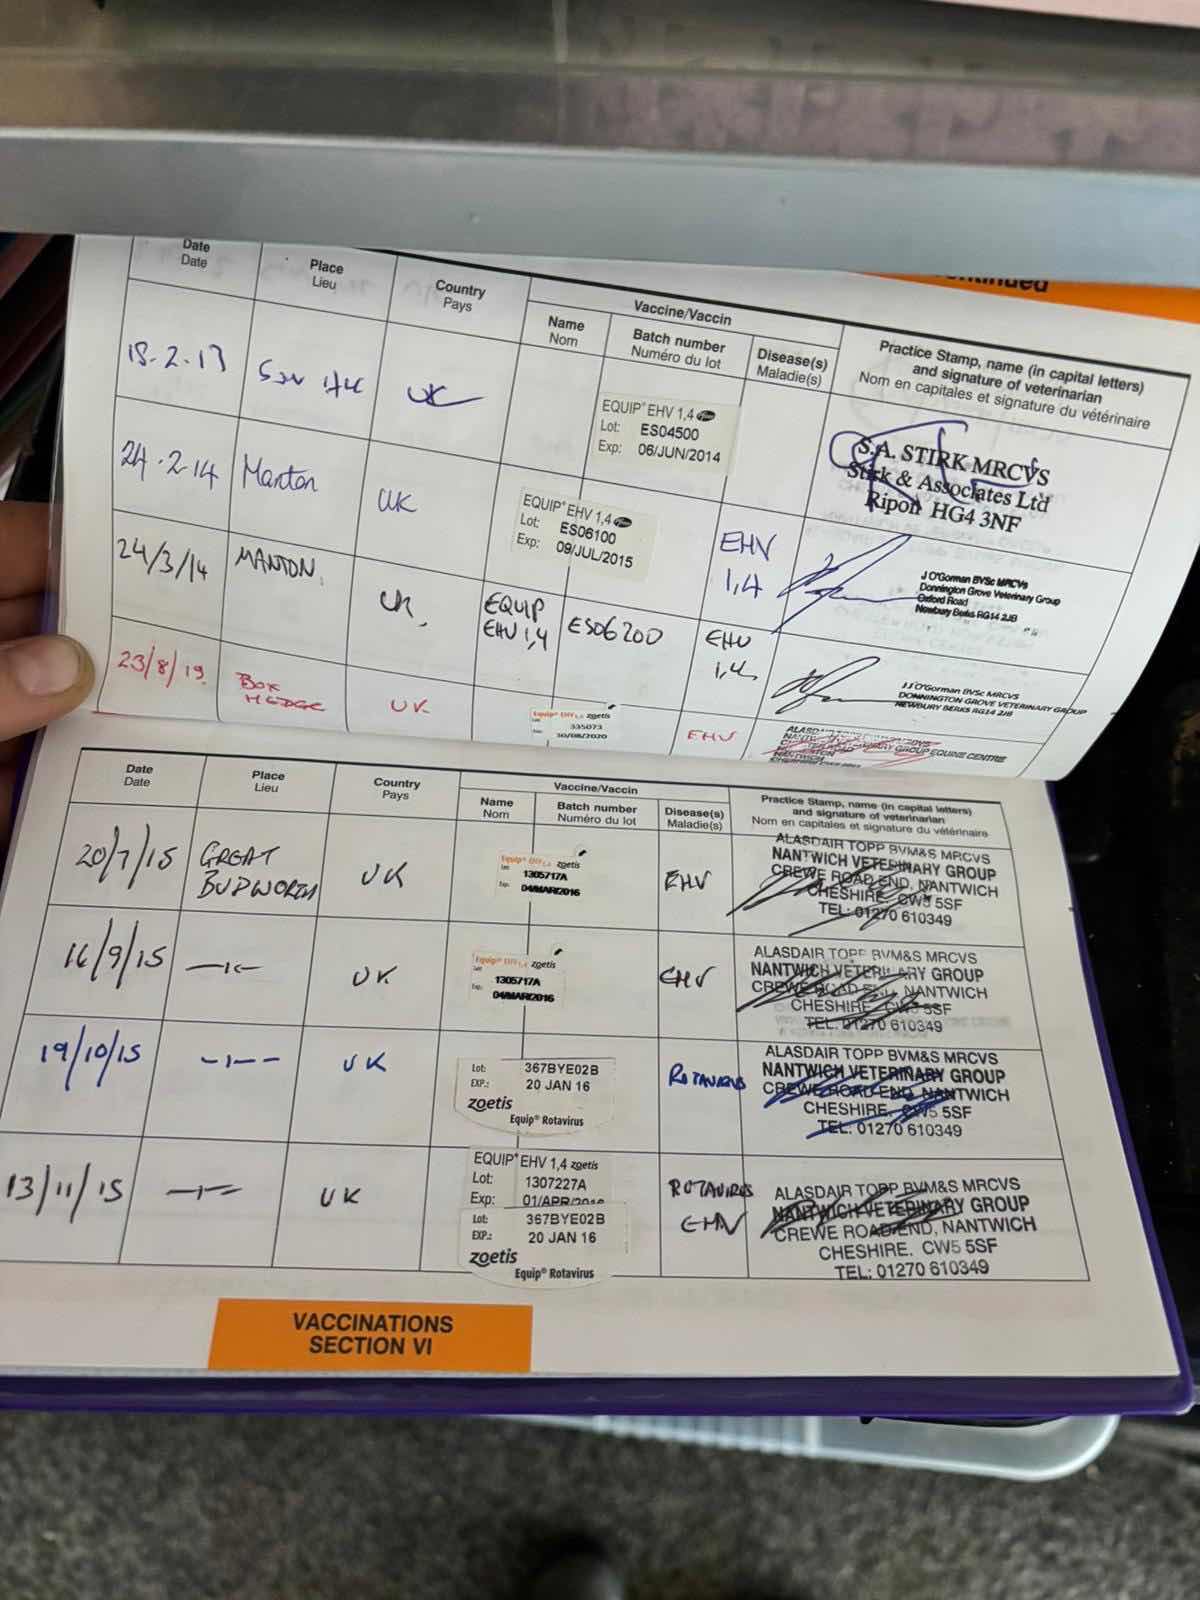 ntinued
Date Place Country Vaccine/Vaccin Practice Stamp, name (in capital letters)
Date Lieu Pays Name Batch number Disease(s) and signature of veterinarian
Nom Numéro du lot Maladie(s) Nom en capitales et signature du vétérinaire
UK
EQUIP® EHV 1,4 Pfizer
Lot: ES04500
Exp: 06/JUN/2014
S.A. STIRK MRCVS
Stirk & Associates Ltd
Ripon HG4 3NF
24.2.14 Manton UK
EQUIP® EHV 1,4 Pfizer
Lot: ES06100
Exp: 09/JUL/2015
EHV
1,4
J O'Gorman BVSc MRCVS
Donnington Grove Veterinary Group
Oxford Road
Newbury Berks RG14 2JB
24/3/14 MANTON. UK.
EQUIP
EHV 1,4
ES06200
EHV
1,4
J J O'Gorman BVSc MRCVS
DONNINGTON GROVE VETERINARY GROUP
NEWBURY BERKS RG14 2JB
23/8/19. BOX
HEDGE
UK
Equip® EHV 1,4 zoetis
Lot: 335073
30/08/2020
EHV
VETERINARY GROUP EQUINE CENTRE
NANTWICH
Date Place Country Vaccine/Vaccin Practice Stamp, name (in capital letters)
Date Lieu Pays Name Batch number Disease(s) and signature of veterinarian
Nom Numéro du lot Maladie(s) Nom en capitales et signature du vétérinaire
20/7/15 GREAT
BUDWORTH
UK
Equip® EHV 1,4 zoetis
Lot: 1305717A
Exp: 04/MAR/2016
EHV
ALASDAIR TOPP BVM&S MRCVS
NANTWICH VETERINARY GROUP
CREWE ROAD END, NANTWICH
CHESHIRE. CW5 5SF
TEL: 01270 610349
16/9/15 —ı— UK
Equip® EHV 1,4 zoetis
Lot: 1305717A
Exp: 04/MAR/2016
EHV
ALASDAIR TOPP BVM&S MRCVS
NANTWICH VETERINARY GROUP
CREWE ROAD END, NANTWICH
CHESHIRE. CW5 5SF
TEL: 01270 610349
19/10/15 —ı— UK
Lot: 367BYE02B
EXP.: 20 JAN 16
zoetis
Equip® Rotavirus
ROTAVIRUS
ALASDAIR TOPP BVM&S MRCVS
NANTWICH VETERINARY GROUP
CREWE ROAD END, NANTWICH
CHESHIRE. CW5 5SF
TEL: 01270 610349
13/11/15 —ı— UK
EQUIP® EHV 1,4 zoetis
Lot: 1307227A
Exp: 01/APR/2016
Lot: 367BYE02B
EXP.: 20 JAN 16
zoetis
Equip® Rotavirus
ROTAVIRUS
EHV
ALASDAIR TOPP BVM&S MRCVS
NANTWICH VETERINARY GROUP
CREWE ROAD END, NANTWICH
CHESHIRE. CW5 5SF
TEL: 01270 610349
VACCINATIONS
SECTION VI